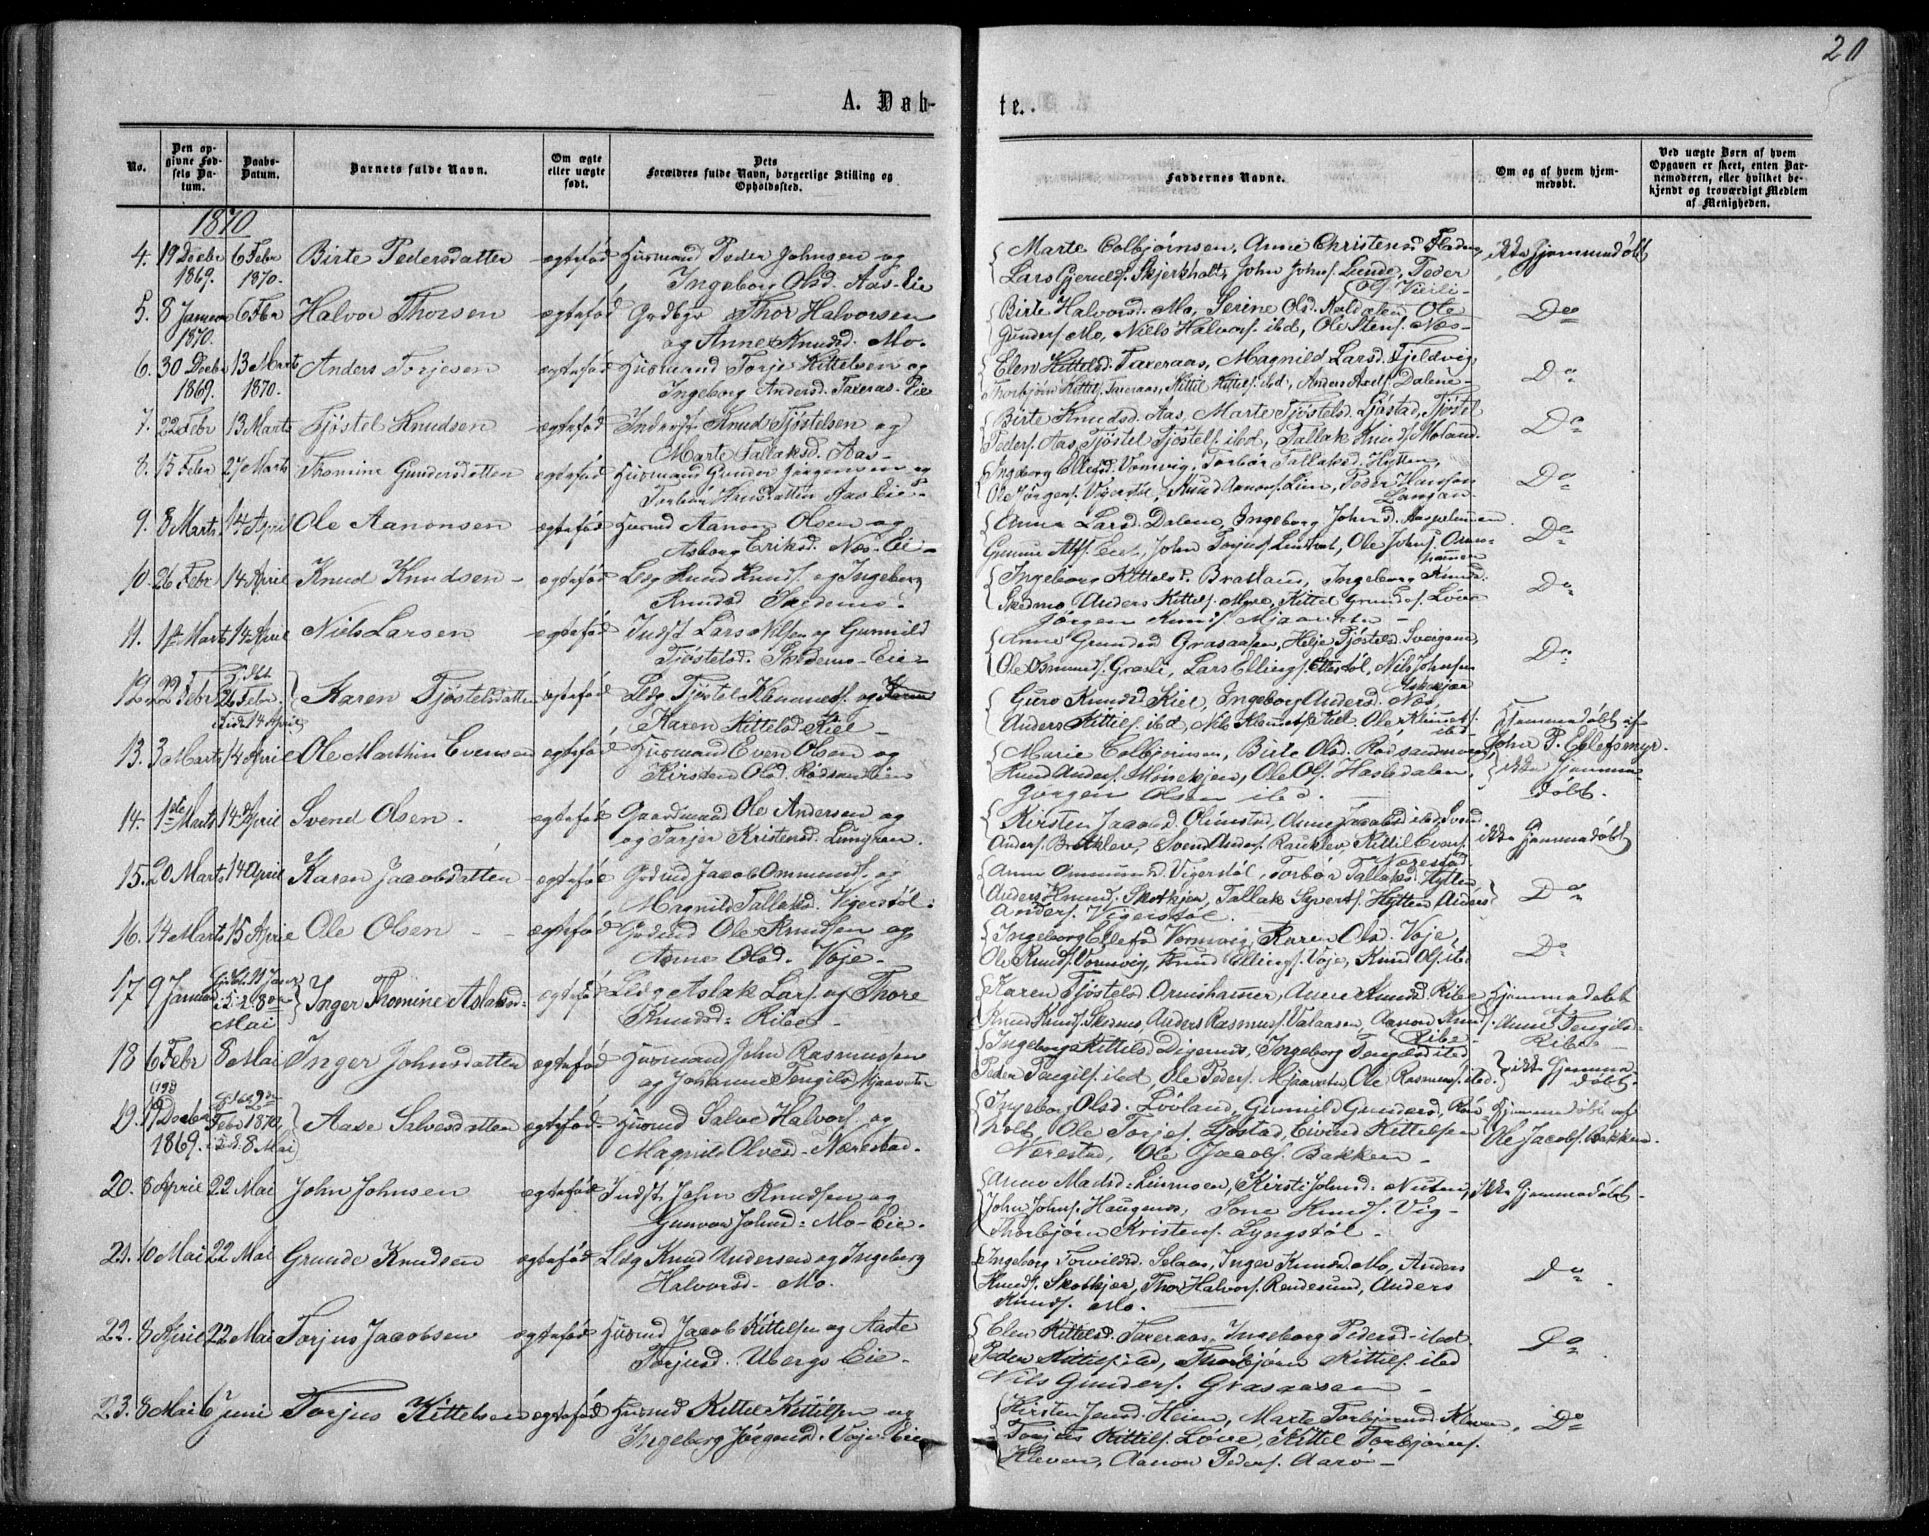 20
A. Døb-
te.
No.
Den op-
givne Fød-
sels Da-
tum.
Daabs-
Datum.
Barnets fulde Navn.
Om ægte
eller uægte
født.
Dets
Forældres fulde Navn, borgerlige Stilling og
Opholdssted.
Faddernes Navne.
Om og af hvem hjem-
medøbt.
Ved uægte Børn af hvem
Opgaven er skeet, enten Bar-
nemoderen, eller hvilket be-
kjendt og troværdigt Medlem
af Menigheden.
1870
4. 19 Decbr 6 Febr Birte Pedersdatter ægtefød Husmand Peder Johnsen og
1869. 1870. Ingeborg Olsd. Aas-Eie
Marte Colbjørnsen, Anne Christensd
Lars Gjeruldsf. Skjerkholt, John Johnsf. Lunde, Peder
ikke Hjemmedøbt
5. 8 Januar 6 Febr Halvor Thorsen ægtefød Gbdbgr Thor Halvorsen
1870. og Anne Knudsd. Mo.
Birte Halvorsd. Mo, Serine Olsd. Ole
Gundersf. Mo, Niels Halvorsf. ibd, Ole Stensf. Næs-
Do
6. 30 Decbr 13 Marts Anders Torjesen ægtefød Husmand Torje Kittelsen og
1869. 1870. Ingeborg Andersd. Taxeraas-Eie
Elen Kittelsd. Taxeraas, Magnild Larsd. Fjeldvig
Thorbjørn Kittelsf. Taxeraas, Kittil Kittilsf. ibd, Anders Dalene-
Do
7. 22 Febr 13 Marts Tjøstel Knudsen ægtefød Inderst Knud Tjøstelsen og
Marte Tallaksd. Aas-
Birte Knudsd. Aas, Marte Tjøstelsd. Ljøstad, Tjøstel
Pedersf. Aas, Tjøstel Tjøstelsf. ibd, Tallak Knudsf. Moland.
Do
8. 15 Febr 27 Marts Thomine Gundersdatter ægtefød Husmand Gunder Jørgensen og
Torbør Knudsdatter Aas Eie.
Ingeborg Ellefsd. Vormvig, Torbør Tallaksd. Hytten,
Ole Jørgensf. Vigerstøl, Knud Aanonsf. Lien, Peder Hansen
Langan
Do
9. 8 Marts 14 April Ole Aanonsen ægtefød Husmd Aanon Olsen og
Asborg Eriksd. Næs-Eie-
Anna Larsd. Dalene, Ingeborg Johnsd.
Gunnu Alfsf. Eie, John Torjusf. Ole Johnsf.
Do
10. 26 Febr 14 April Knud Knudsen- ægtefød Ldg Knud Knudsf. og Ingeborg
Knudsd Skedsmo.
Ingeborg Kittelsd. Bratland, Ingeborg Knudsd.
Skedsmo, Anders Kittelsf. Myre, Kittel Grundesf. Løve
Jørgen Knudsf. Mjaavatn-
Do
11. 1ste Marts 14 April Niels Larsen ægtefød Indst Lars Nilsen og Gunnild
Tjøstelsd. Skedsmo-Eie-
Anne Grundesd Grasaasen, Helje Tjøstelsd. Sveigen,
Ole Osmundsf. Grasli, Lars Ellingsf. Ettestøl, Nils Johnsen
Askekjær
Do
12. 22 Febr 26 Febr Karen Tjøstelsdatter ægtefød Ldg Tjøstil Klemmetsf. og
14 April Karen Kittelsd Kiel-
Guro Knudsd Kiel, Ingeborg Andersd. Næs,
Anders Kittilsf. ibd, Nils Klemetsf Kiel, Ole Klemetsf.
ibd-
Hjemmedøbt af
John P. Ellefsmyr.
13. 3 Marts 14 April Ole Marthin Evensen ægtefød Husmand Even Olsen og
Kirsten Olsd. Rødsand Eie
Marie Colbjørnsen, Birte Olsd. Rødsandmoen,
Knud Andersf. Ole Olsf. Hasledalen,
Jørgen Olsen ibd.
ikke Hjemme-
døbt.
14. 1ste Marts 14de April Svend Olsen. ægtefød Gaardmand Ole Andersen og
og Tarjer Kristensd. Lunghøn.
Kirsten Jacobsd. Olimstad, Anne Jacobsd ibd, Svend
Andersf. Bratklev, Svend Andersf. Rauklev, Kittil Evensf.
Nærestad
ikke Hjemmedøbt
15. 20 Marts 14 April Karen Jacobsdatter ægtefød Gbdmd Jacob Ommundsf. og
Magnild Tallaksd. Vigerstøl.
Anne Ommundsd Vigerstøl, Torbør Tallaksd. Hytten
Anders Knudsf. Skotkjær, Tallak Syvertsf. Hytten, Anders
Andersf. Vigerstøl
Do
16. 14 Marts 15 April Ole Olsen ægtefød Gbdmd Ole Knudsen og
Anne Olsd. Voje-
Ingeborg Ellefsd Vormvig, Karen Olsd. Voje,
Ole Knudsf. Vormvig, Knud Ellingsf. Voje, Knud Olsf. ibd
Do
17 9 Januar Inger Thomine Aslaksd. ægtefød Ldg Aslak Larsf. og Thore
Mai Knudsd. Ribe-
Karen Tjøstelsd Ormshammer, Anne Knudsd. Ribe
Knud Knudsf. Skedsmo, Anders Rasmusf. Valaasen, Aanon Knudsf.
Ribe-
Hjemmedøbt
Anne Tengilsd.
Ribe-
18 6 Febr 8 Mai Inger Johnsdatter ægtefød Husmand John Rasmussen
og Johanne Tengilsd Mjaavatn
Ingeborg Kittelsd Digernes, Ingeborg Tengelsd ibd
Peder Tengilsf. ibd, Ole Pedersf. Mjaavatn Ole Rasmusf. ibd.
ikke Hjemme-
døbt.
19. 19 Decbr Febr 1870, Aase Salvesdatter ægtefød Husmd Salve Halvorsf. og
1869. 8 Mai Magnild Olvesd. Nærestad.
Ingeborg Olsd. Løvland, Gunnild Gundersd, Røn-
holt, Ole Torjesf. Ljøstad, Eivind Kittelsen
Nærestad, Ole Jacobsf. Bakken-
Hjemmedøbt af
Ole Jacobsf. Bakken.
20. 8 April 22 Mai John Johnsen ægtefød Indst. John Knudsen og
Gunvor Johnsd. Mo-Eie.
Anne Madsd. Kirsti Johnsd.
John Johnsf. Haugenes, Tone Knudsf. Vig-
Thorbjørn Kristensf. Lyngstøl.
ikke Hjemmedøbt
21. 6 Mai 22 Mai Grunde Knudsen ægtefød Ldg Knud Andersen og Ingeborg
Halvorsd. Mo.
Ingeborg Torvildsd. Selaas, Inger Knudsd. Mo, Anders
Knudsf. Skotkjær, Thor Halvorsf. Rendesund, Anders
Knudsf. Mo.
Do
22. 8 April 22 Mai Torjus Jacobsen ægtefød Husmd Jacob Kittelsen og Aaste
Torjusd. Ubergs Eie.
Elen Kittelsd. Taxeraas, Ingeborg Pedersd. ibd
Peder Kittilsf. ibd, Thorbjørn Kittilsf. ibd
Nils Gundersf. Grasaasen
Do
23. 8 Mai 6 Juni Torjus Kittelsen ægtefød Husmd Kittel Kittilsen og
Ingeborg Jørgensd. Voje-Eie
Kirsten Jensd. Heien, Marte Torbjørnsd. Kleven
Torjus Kittilsf. Løve, Kittel Torbjørnsf.
Kleven, Aanon Pedersf. Aarø-
Do